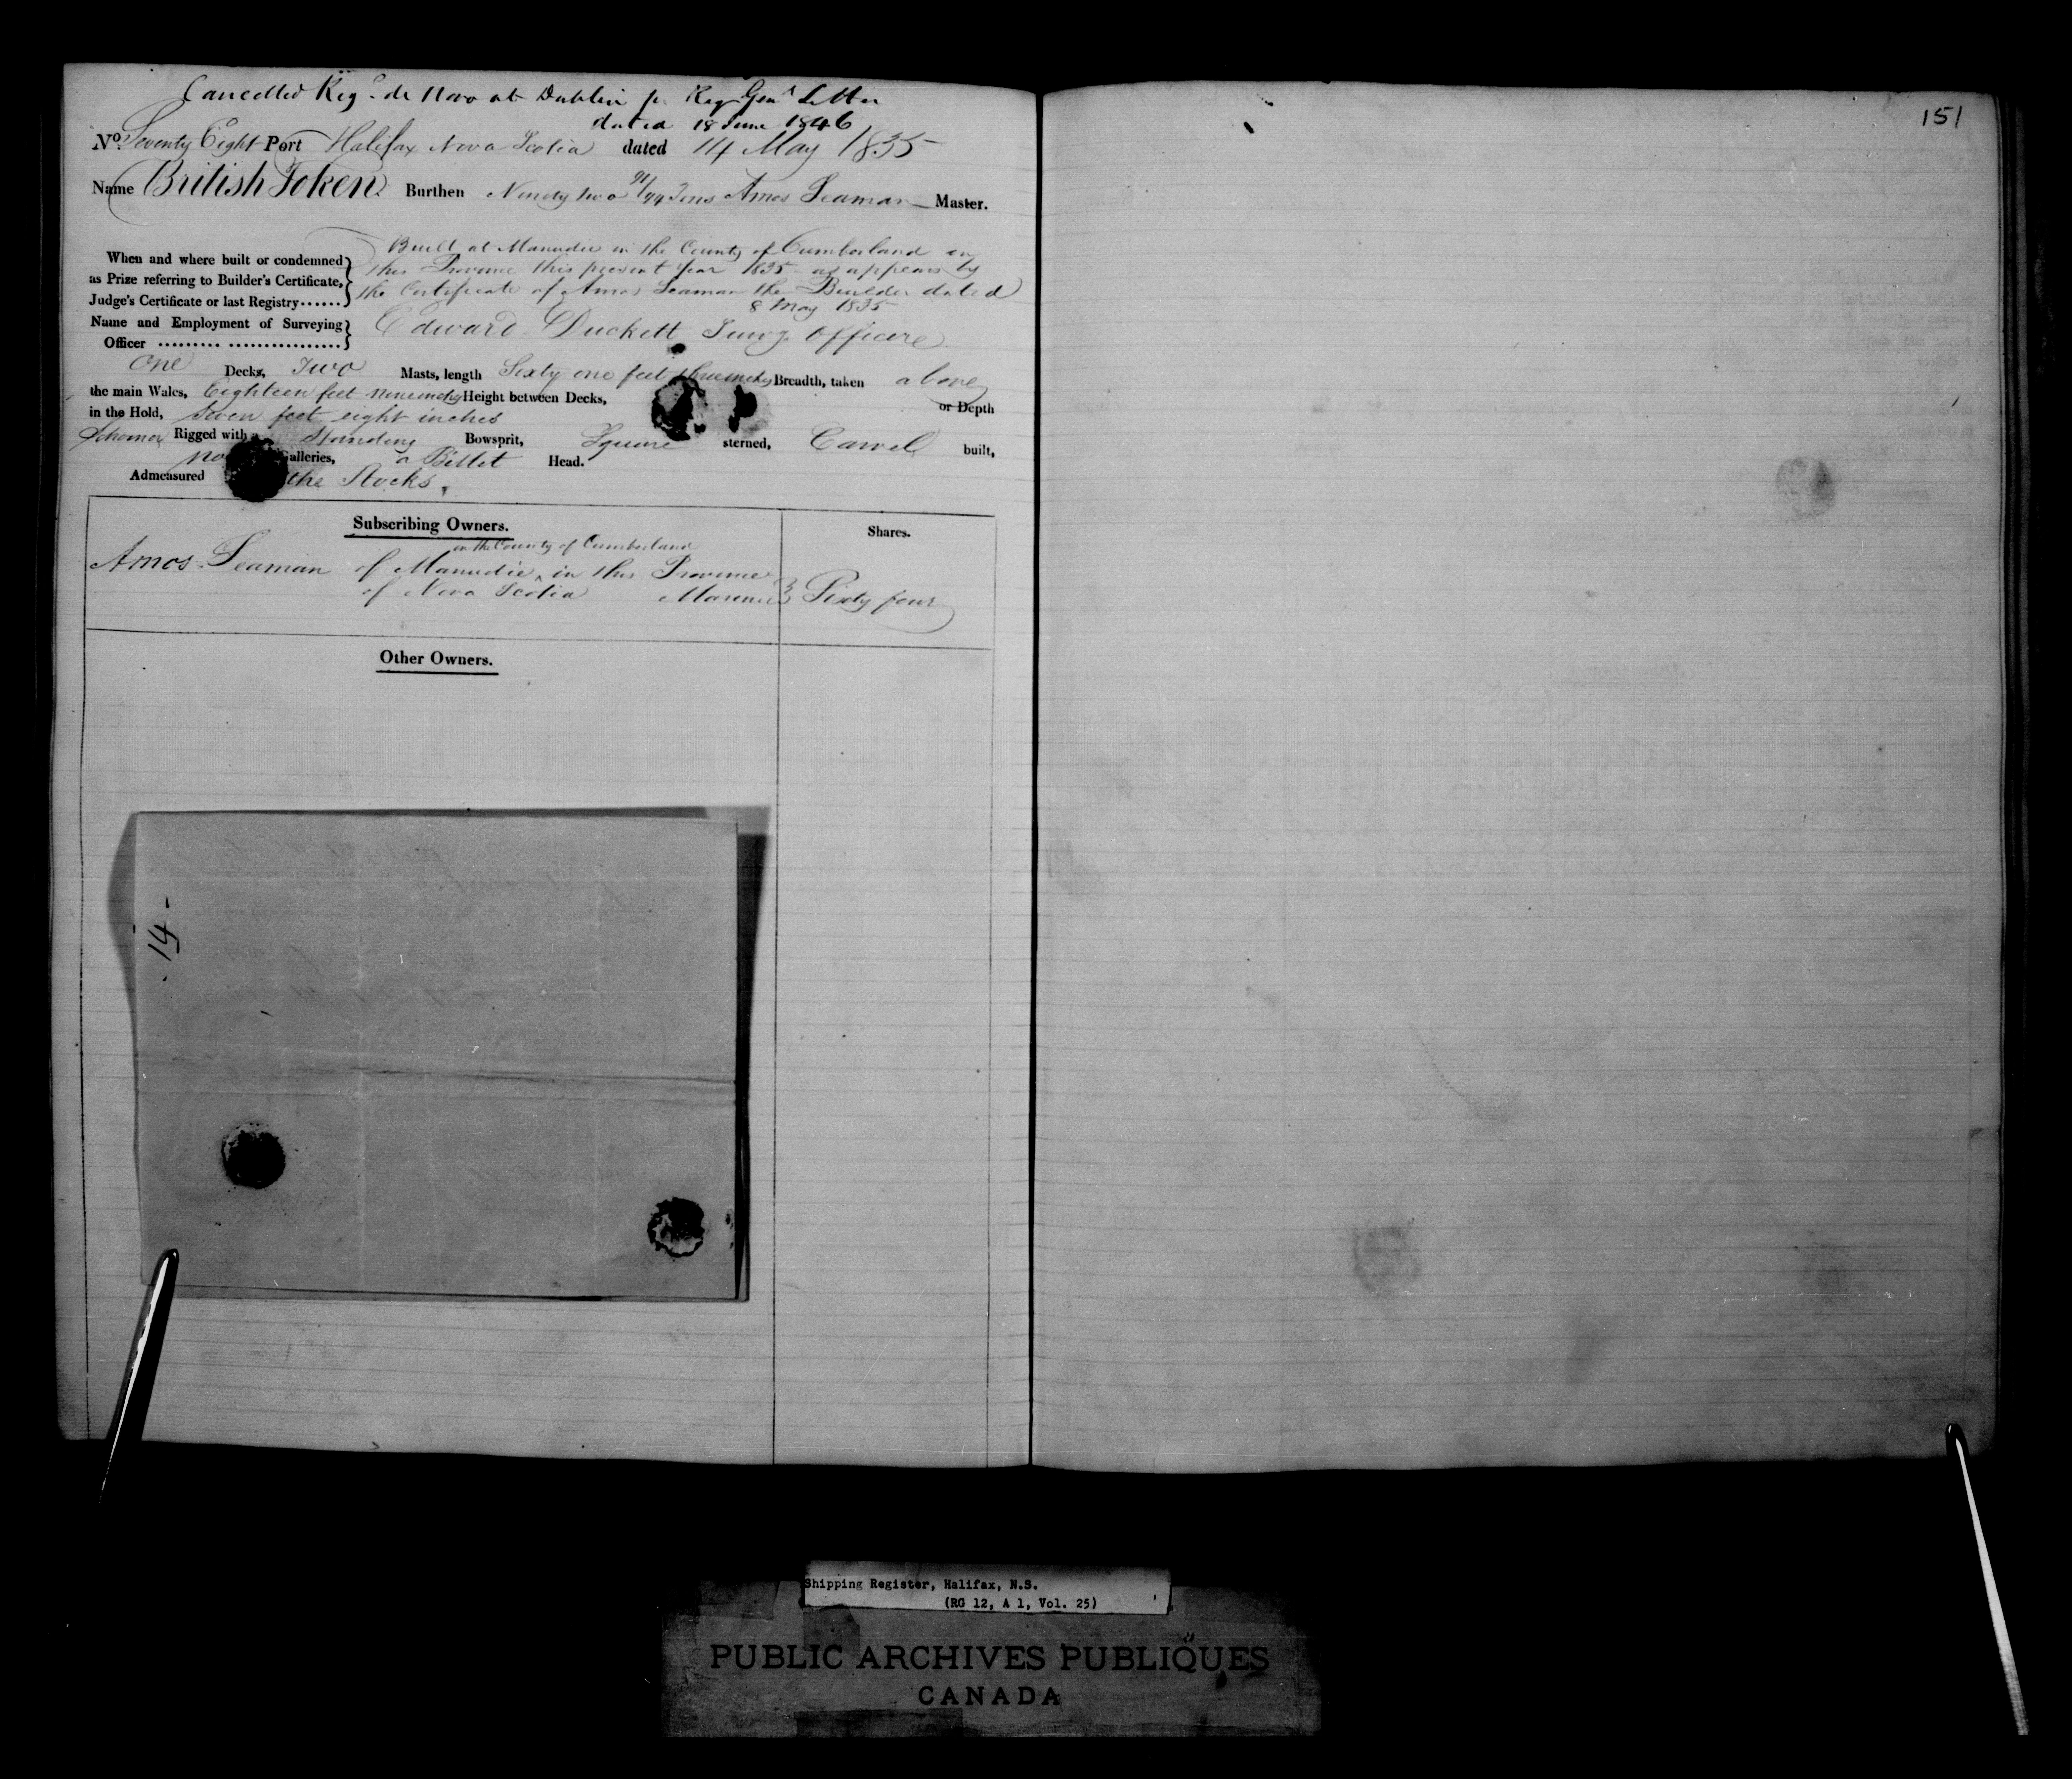 Cancelled Reg. de Novo at Dublin pr. Reg. Genl Letter
dated 18 June 1846
151
No. Seventy Eight Port Halifax Nova Scotia dated 14 May 1835
Name British Token Burthen Ninety two 91/94 Tons Amos Seaman Master.
When and where built or condemned as Prize referring to Builder's Certificate, Judge's Certificate or last Registry......
Built at Manudie in the County of Cumberland in
this Province this present year 1835 as appears by
the Certificate of Amos Seaman the Builder dated
8 May 1835
Name and Employment of Surveying Officer ......... ................
Edward Duckett Survg. Officer
One Decks, Two Masts, length Sixty one feet three inches Breadth, taken above
the main Wales, Eighteen feet nine inches Height between Decks, or Depth
in the Hold, Seven feet eight inches
Schooner Rigged with a Standing Bowsprit, Square sterned, Carvel built,
no Galleries, a Billet Head.
Admeasured the Stocks.
Subscribing Owners.
Shares.
in the County of Cumberland
Amos Seaman of Manudie, in this Province
of Nova Scotia Mariner Sixty four
Other Owners.
14
Shipping Register, Halifax, N.S.
(RG 12, A 1, Vol. 25)
PUBLIC ARCHIVES PUBLIQUES
CANADA